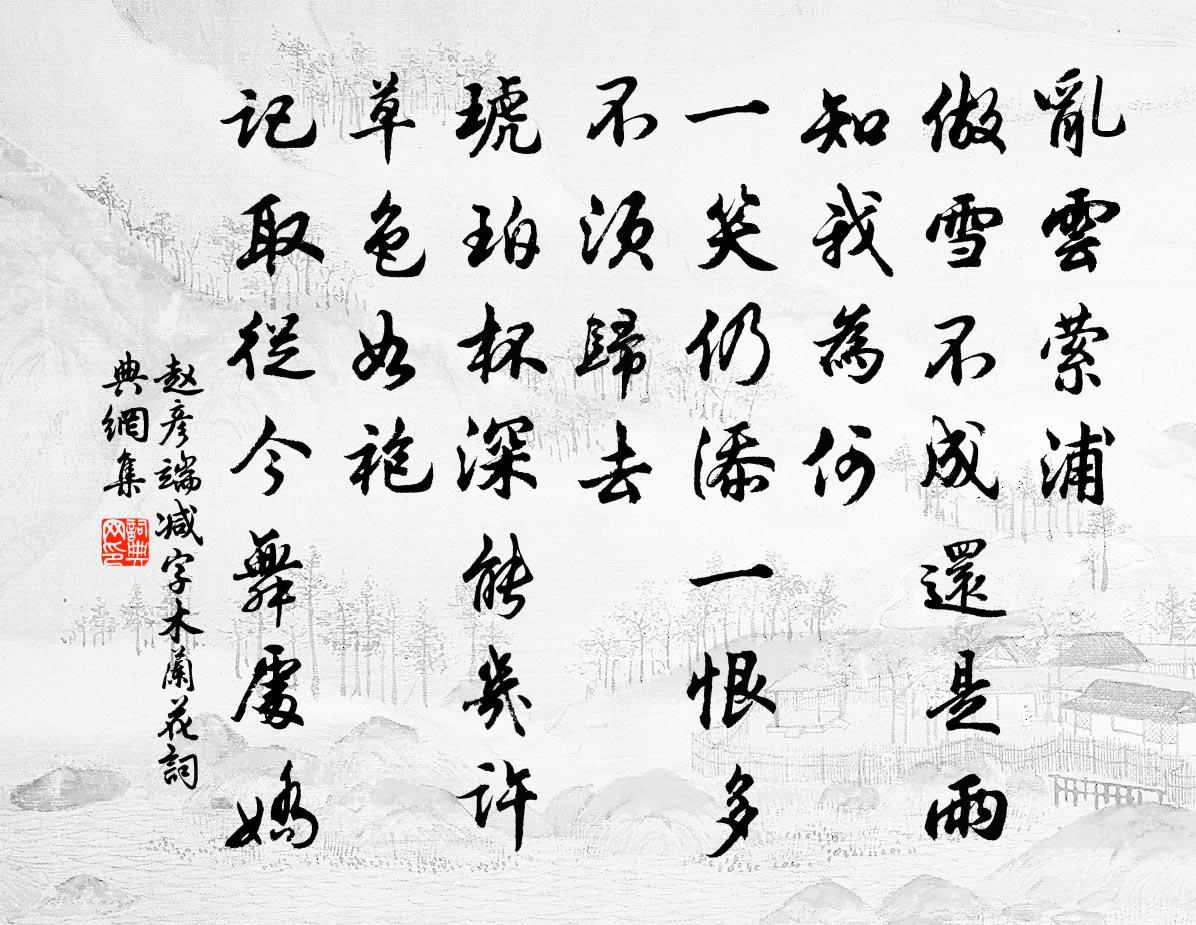 亂雲萦浦
做雪不成還是雨
知我為何
一笑仍添一恨多
不須歸去
琥珀杯深能幾許
草色如袍
記取從今舞處嬌
赵彦端减字木蘭花詞
典網集
詞典
网印